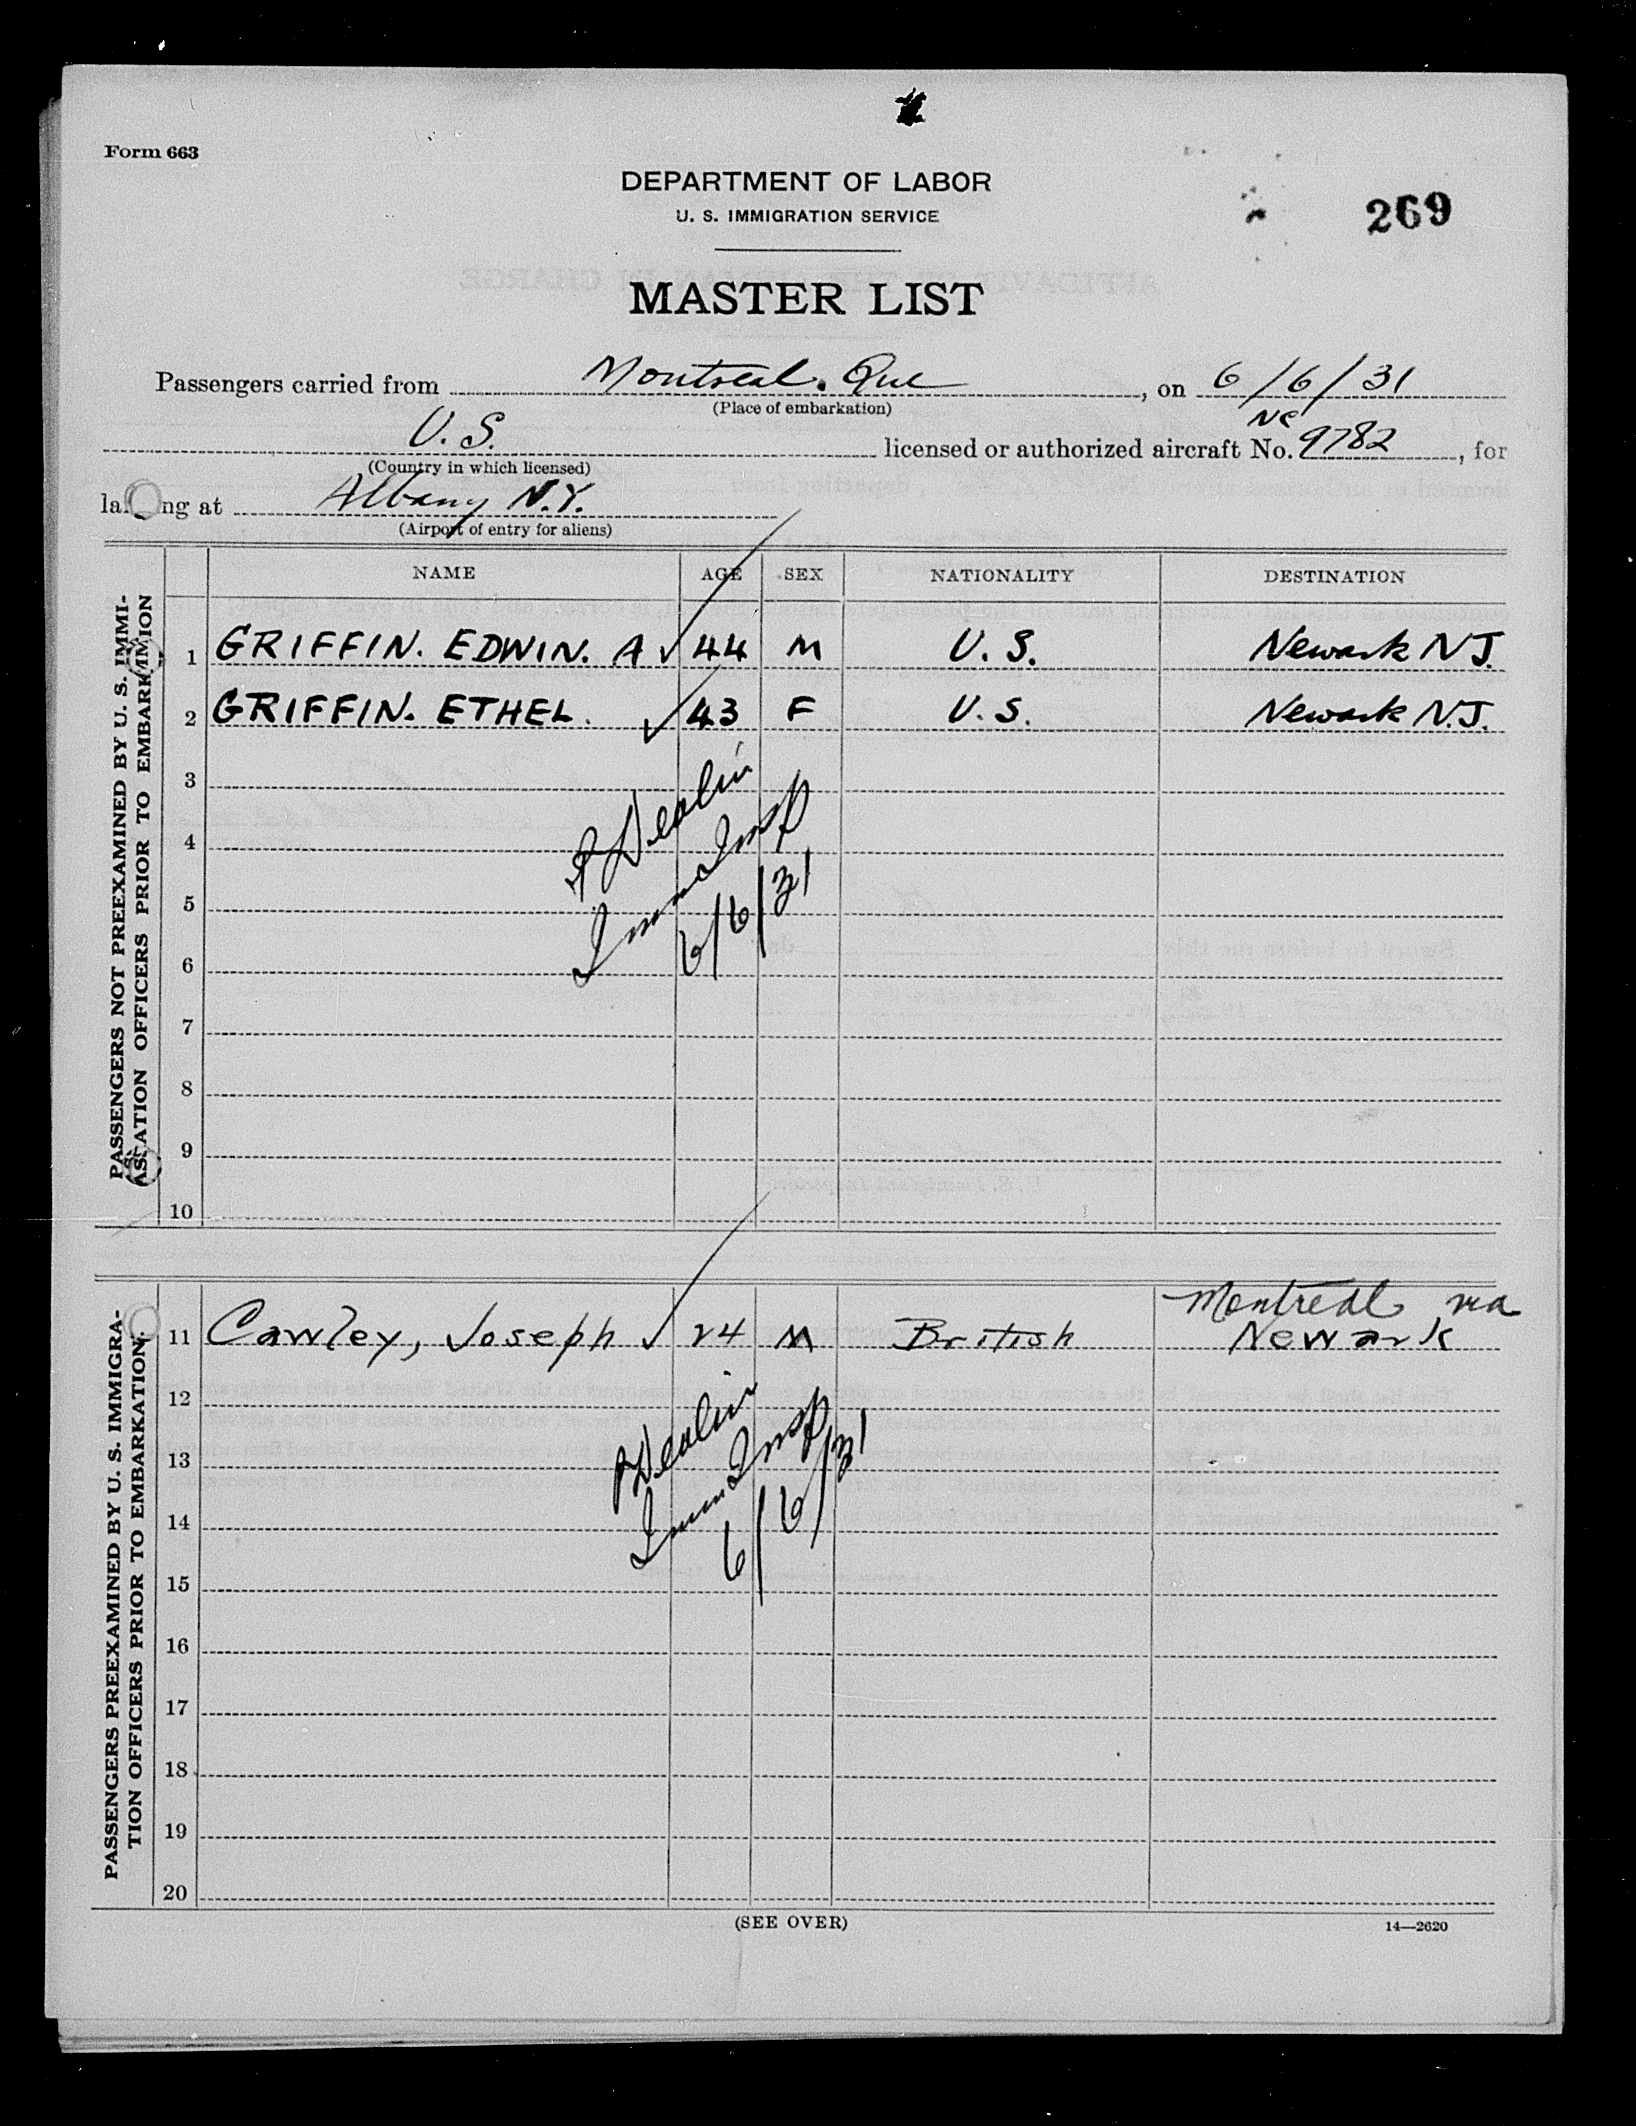 Form 663
DEPARTMENT OF LABOR
U. S. IMMIGRATION SERVICE
269
MASTER LIST
Passengers carried from Montreal. Que, on 6/6/31
(Place of embarkation)
NC
U. S. licensed or authorized aircraft No. 9782, for
(Country in which licensed)
la ng at Albany N.Y.
(Airport of entry for aliens)
NAME AGE SEX NATIONALITY DESTINATION
PASSENGERS NOT PREEXAMINED BY U. S. IMMI-
ATION OFFICERS PRIOR TO EMBARK
1 GRIFFIN. EDWIN. A ✓ 44 M U. S. Newark NJ.
2 GRIFFIN. ETHEL. ✓ 43 F U. S. Newark N.J.
3
4
5
6
7
8
9
10
Imm Insp
6/6/31
PASSENGERS PREEXAMINED BY U. S. IMMIGRA-
TION OFFICERS PRIOR TO EMBARKATION
Montreal via
11 Cawley, Joseph ✓ 24 M British Newark
12
13
14
15
16
17
18
19
20
Imm Insp
6/6/31
(SEE OVER)
14—2620